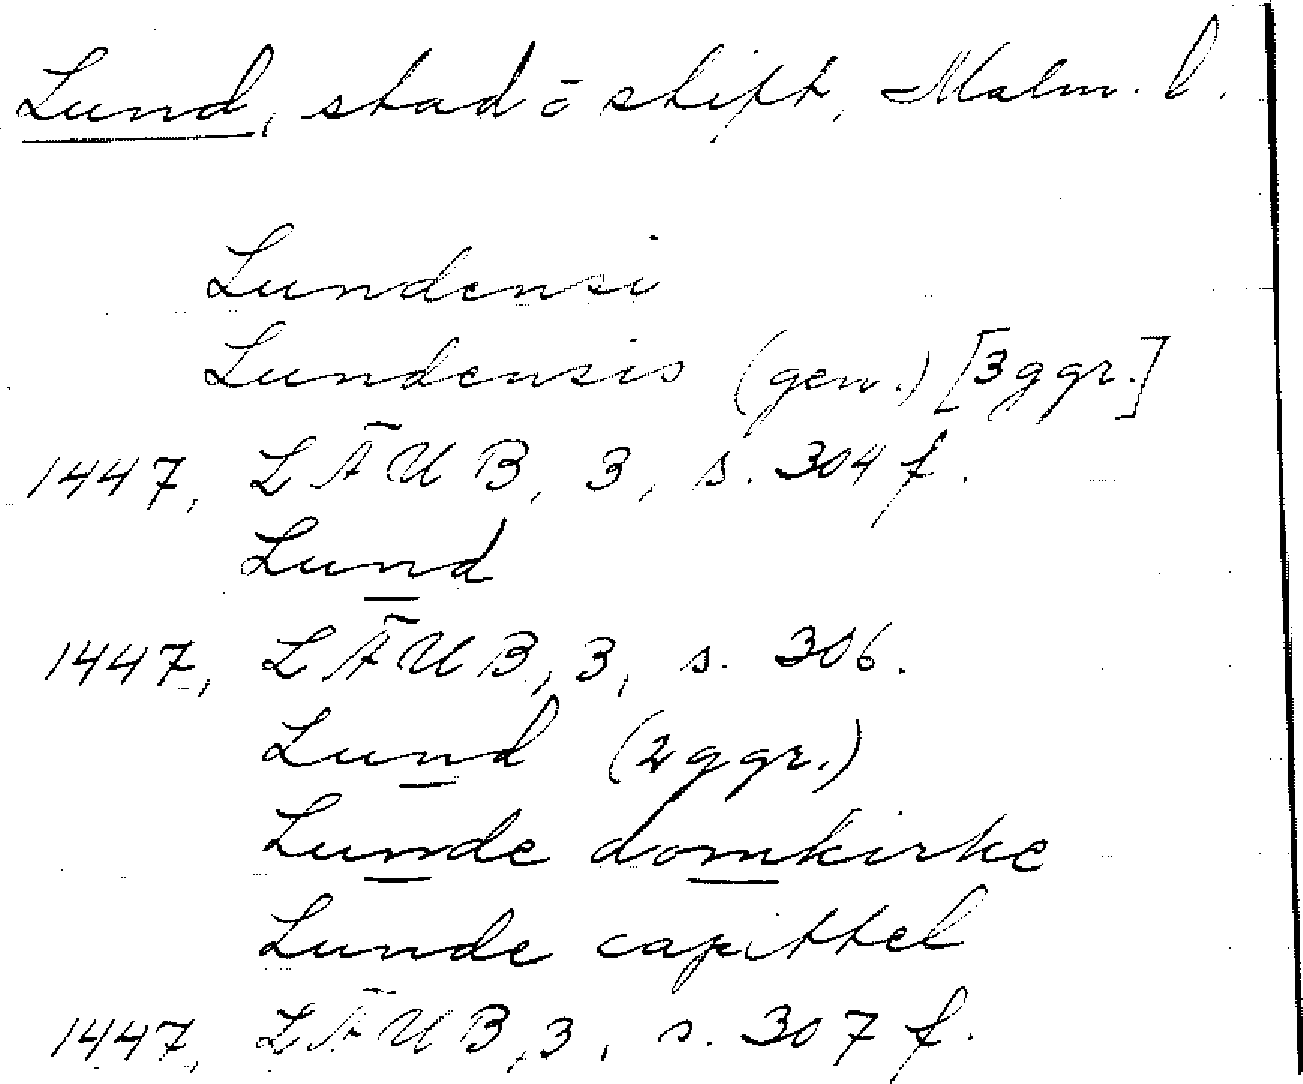 Lund, stad o stift, Malm. l.
Lundensi
Lundensis (gen.) [3 ggr.]
1447, LÄUB, 3, s. 304 f.
Lund
1447, LÄUB, 3, s. 306.
Lund (2 ggr.)
Lunde domkirke
Lunde capittel
1447, LÄUB, 3, s. 307 f.